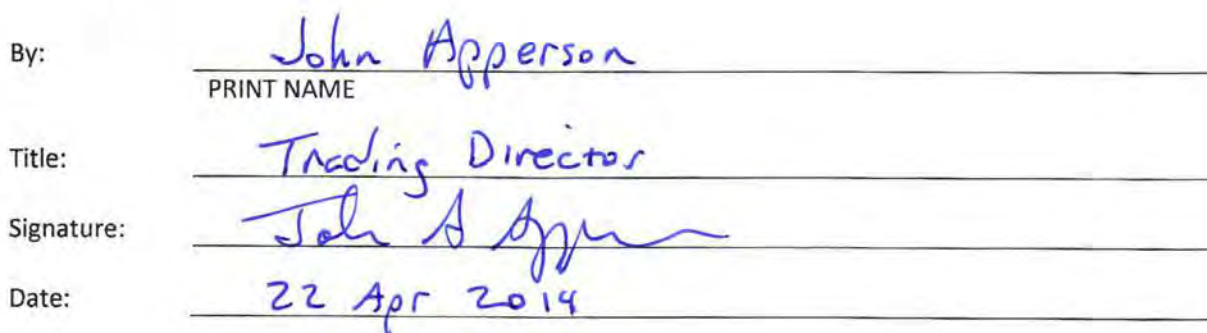 By: John Apperson
PRINT NAME
Title: Trading Director
Signature: John A Apperson
Date: 22 Apr 2014